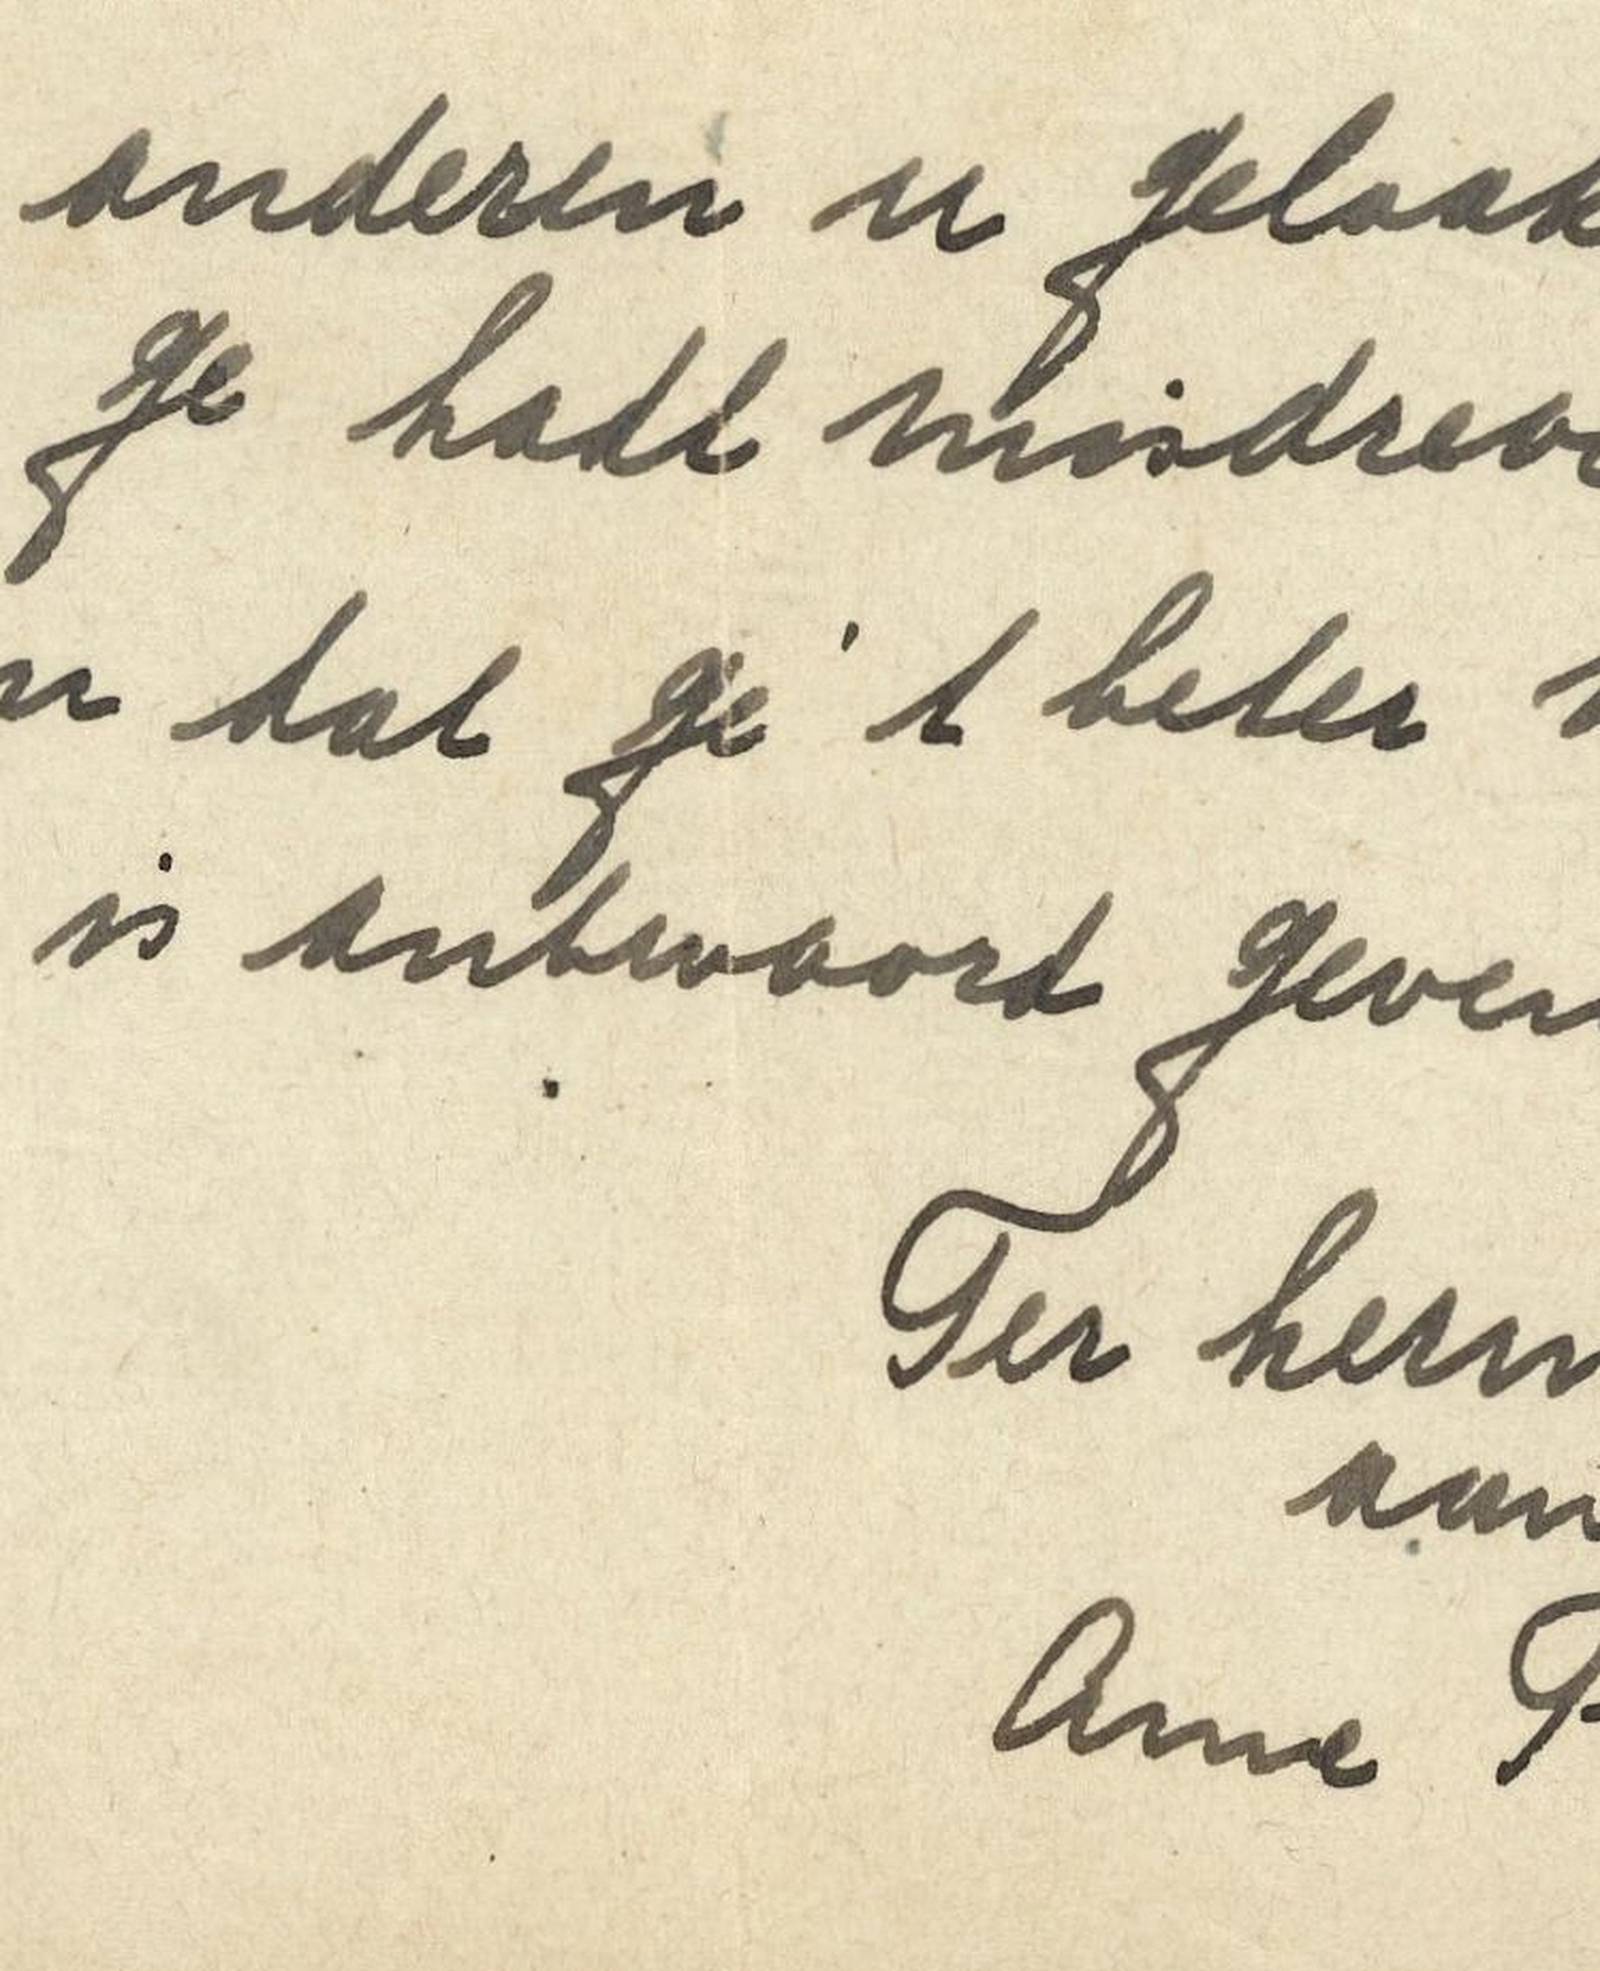 anderen u gelaak
ge hadt misdreve
n dat ge 't beter
is antwoord geven
Ter herin
aan
Arne